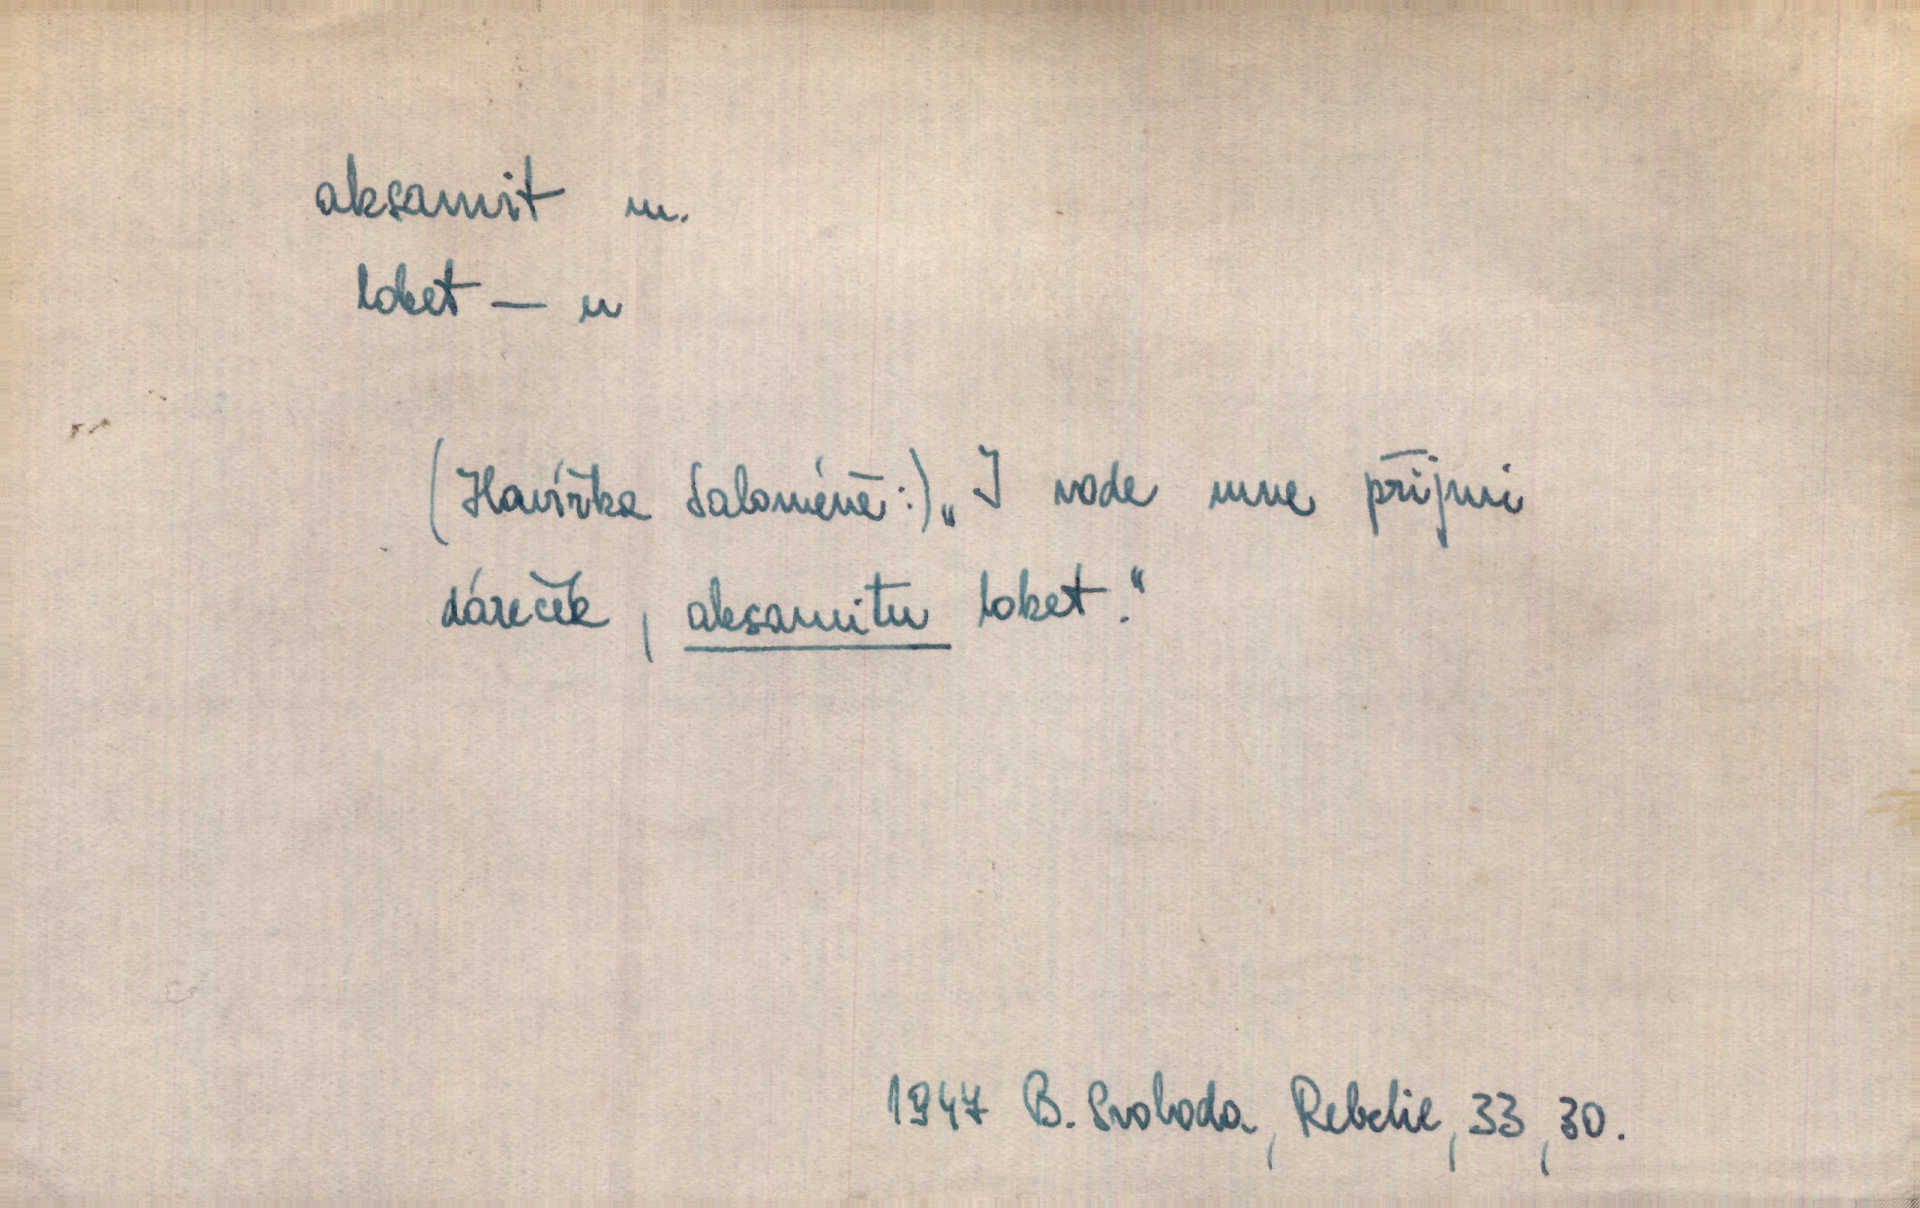 aksamit m.
loket — u
(Havířka Saloméně:) „I vode mne přijmi
dáreček, aksamitu loket.“
1947 B. Svoboda, Rebelie, 33, 30.